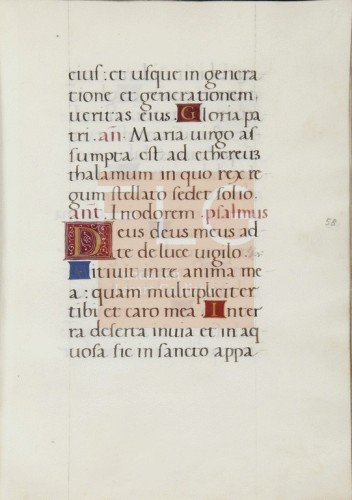 eius: et usque in genera
tione et generationem
ueritas eius. Gloria pa
tri. añ. Maria uirgo as
sumpta est ad ethereuz
thalamum in quo rex re
gum stellato sedet solio.
ant. In odorem. psalmus
Deus deus meus ad
te de luce uigilo.
Sitiuit in te anima me
a: quam multipliciter
tibi et caro mea. In ter
ra deserta inuia et in aq
uosa sic in sancto appa
58